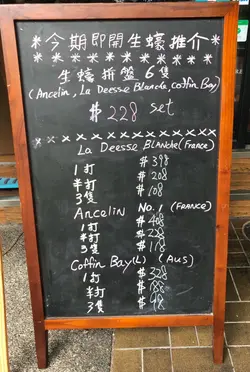 *今期即開生蠔推介*
生蠔拼盤6隻
(Ancelin, La Deesse Blanche, Coffin Bay)
$228 set
La Deesse Blanche (France)
1打 $398
半打 $208
3隻 $108
Ancelin No.1 (FRANCE)
1打 $408
半打 $228
3隻 $118
Coffin Bay(L) (AUS)
1打 $328
半打 $188
3隻 $98